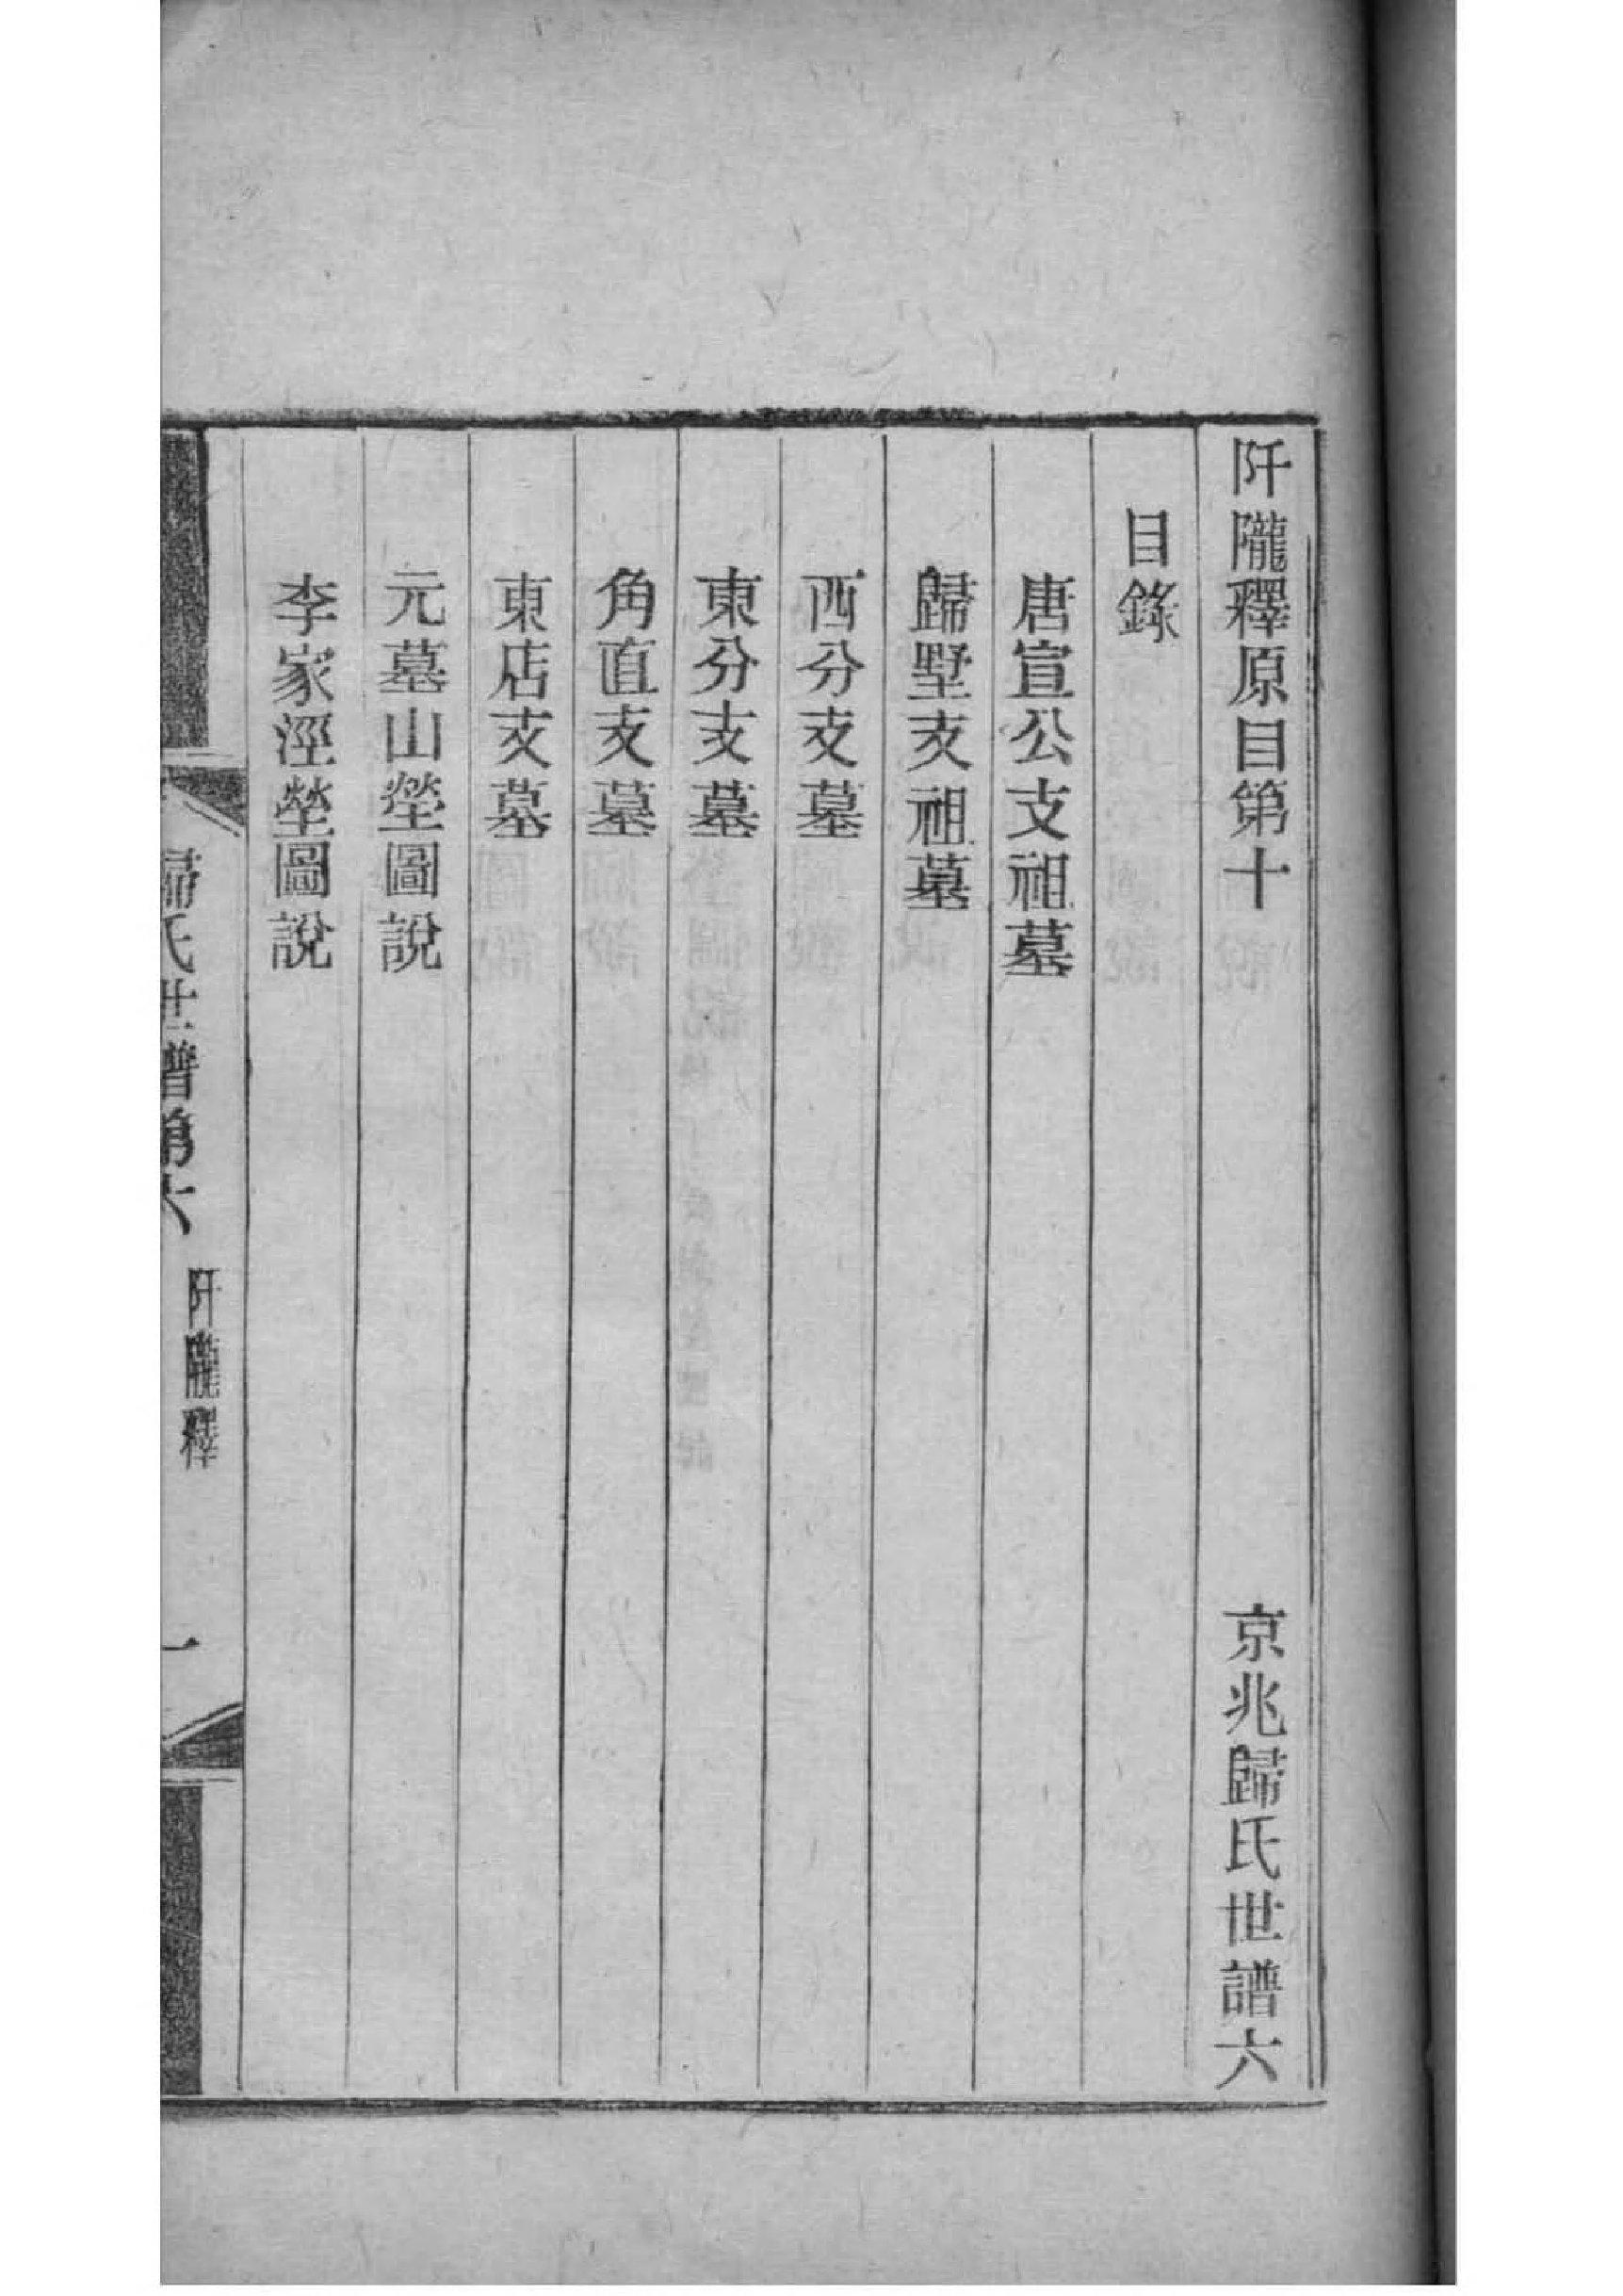 阡隴釋原目第十　京兆歸氏世譜六
目錄
唐宣公支祖墓
歸墅支祖墓
西分支墓
東分支墓
角直支墓
東店支墓
元墓山塋圖說
李家涇塋圖說
歸氏世譜第六　阡隴釋　一